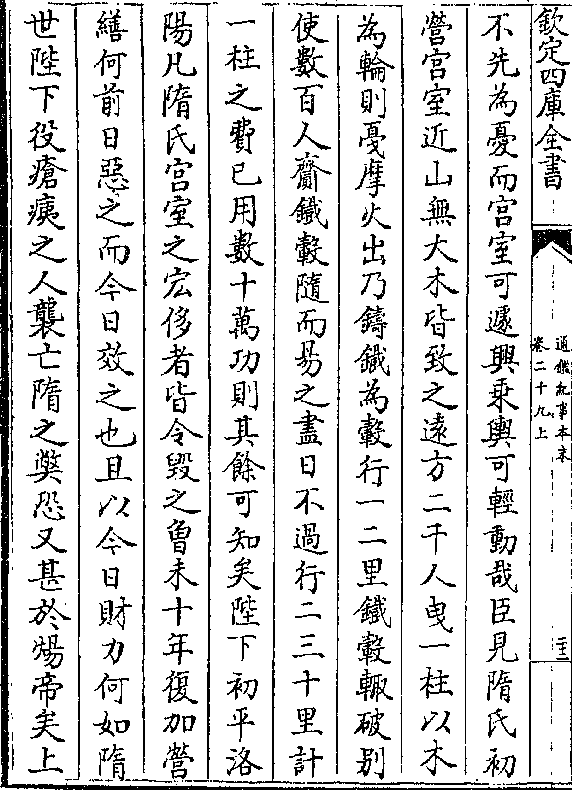 欽定四庫全書
通鑑紀事本末
卷二十九上
二十三
不先為憂而宫室可遽興乗輿可輕動哉臣見隋氏初
營宫室近山無大木皆致之遠方二千人曵一柱以木
為輪則戞摩火出乃鑄鐵為轂行一二里鐵轂輙破别
使數百人齎鐵轂隨而易之盡日不過行二三十里計
一柱之費已用數十萬功則其餘可知矣陛下初平洛
陽凡隋氏宫室之宏侈者皆令毁之曾未十年復加營
繕何前日惡之而今日效之也且以今日財力何如隋
世陛下役瘡痍之人襲亡隋之獘恐又甚於煬帝矣上